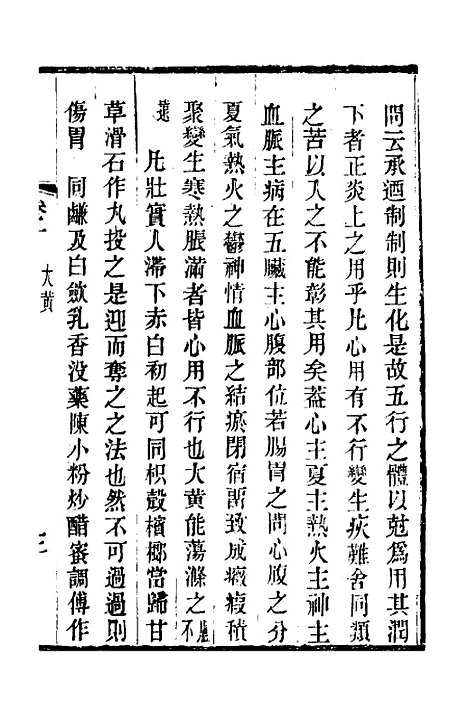 問云承迺制制則生化是故五行之體以尅爲用其潤
下者正炎上之用乎凡心用有不行變生疾難舍同類
之苦以入之不能彰其用矣葢心主夏主熱火主神主
血脈主病在五臟主心腹部位若腸胃之問心腹之分
夏氣熱火之鬱神情血脈之結瘀閉宿所致成癥瘕積
聚變生寒熱脹滿者皆心用不行也大黃能蕩滌之
凡壯實人滯下赤白初起可同枳殼檳榔當歸甘
草滑石作丸投之是迎而奪之之法也然不可過過則
傷胃 同鹻及白斂乳香没藥陳小粉炒醋蜜調傅作
卷一 大黃